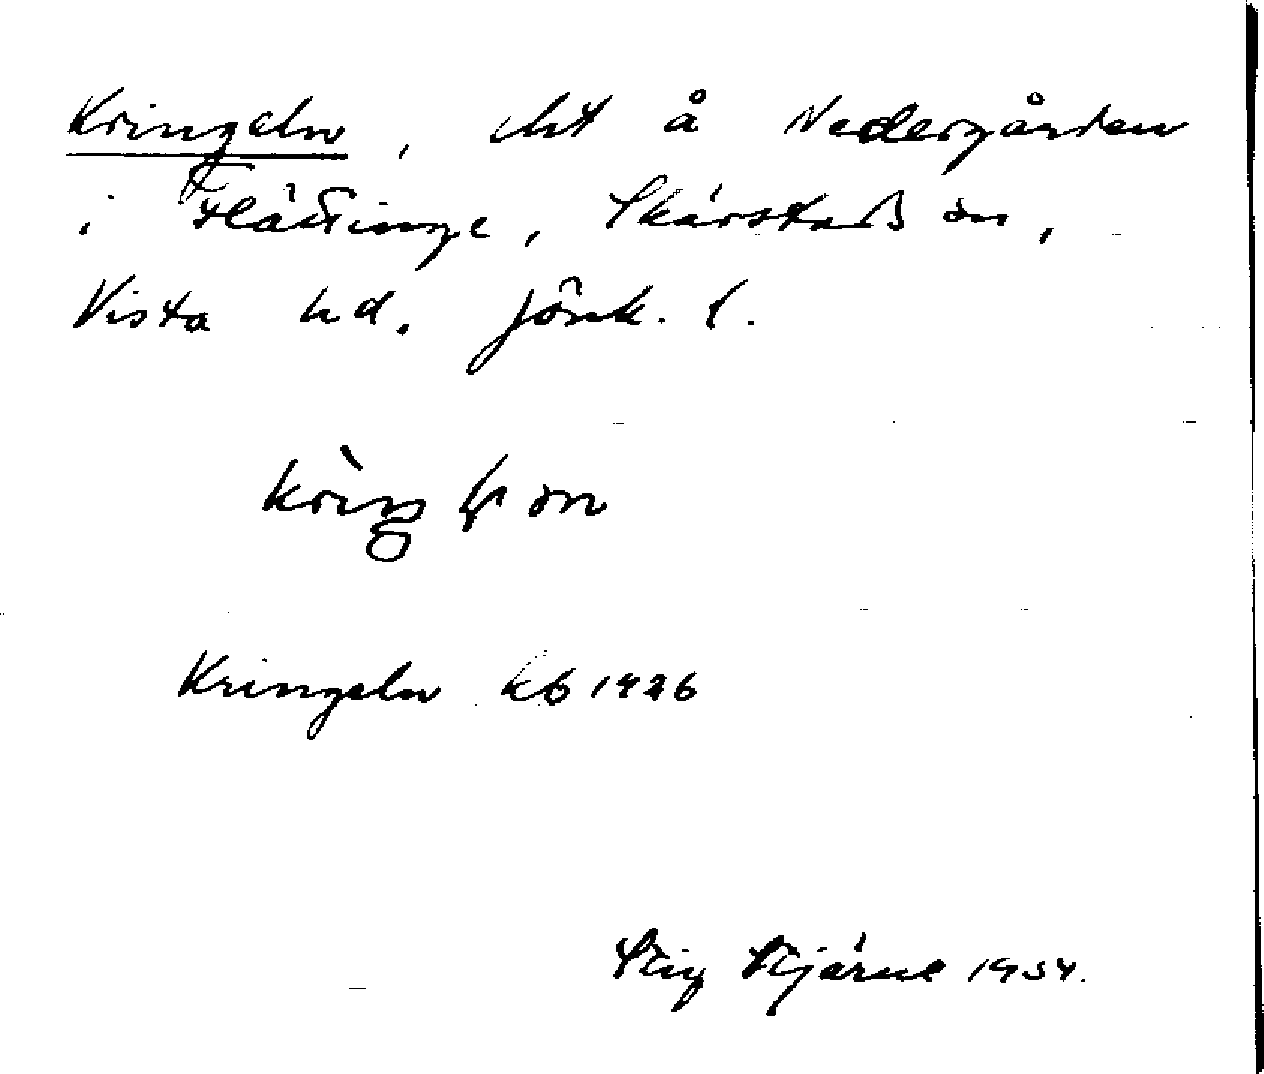 Kringeln, lht å Nedergården
i Flättinge, Skärstads sn,
Vista hd. Jönk. l.
Kringeln kb 1926
Stig Stjärne 1954.